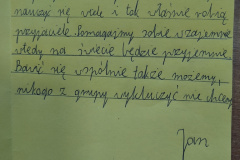 nauczyć się wiele i tak właśnie robią
przyjaciele. Pomagajmy sobie wzajemnie
wtedy na świecie będzie przyjemnie.
Bawić się wspólnie także możemy,
nikogo z grupy wykluczyć nie chcemy
Jan